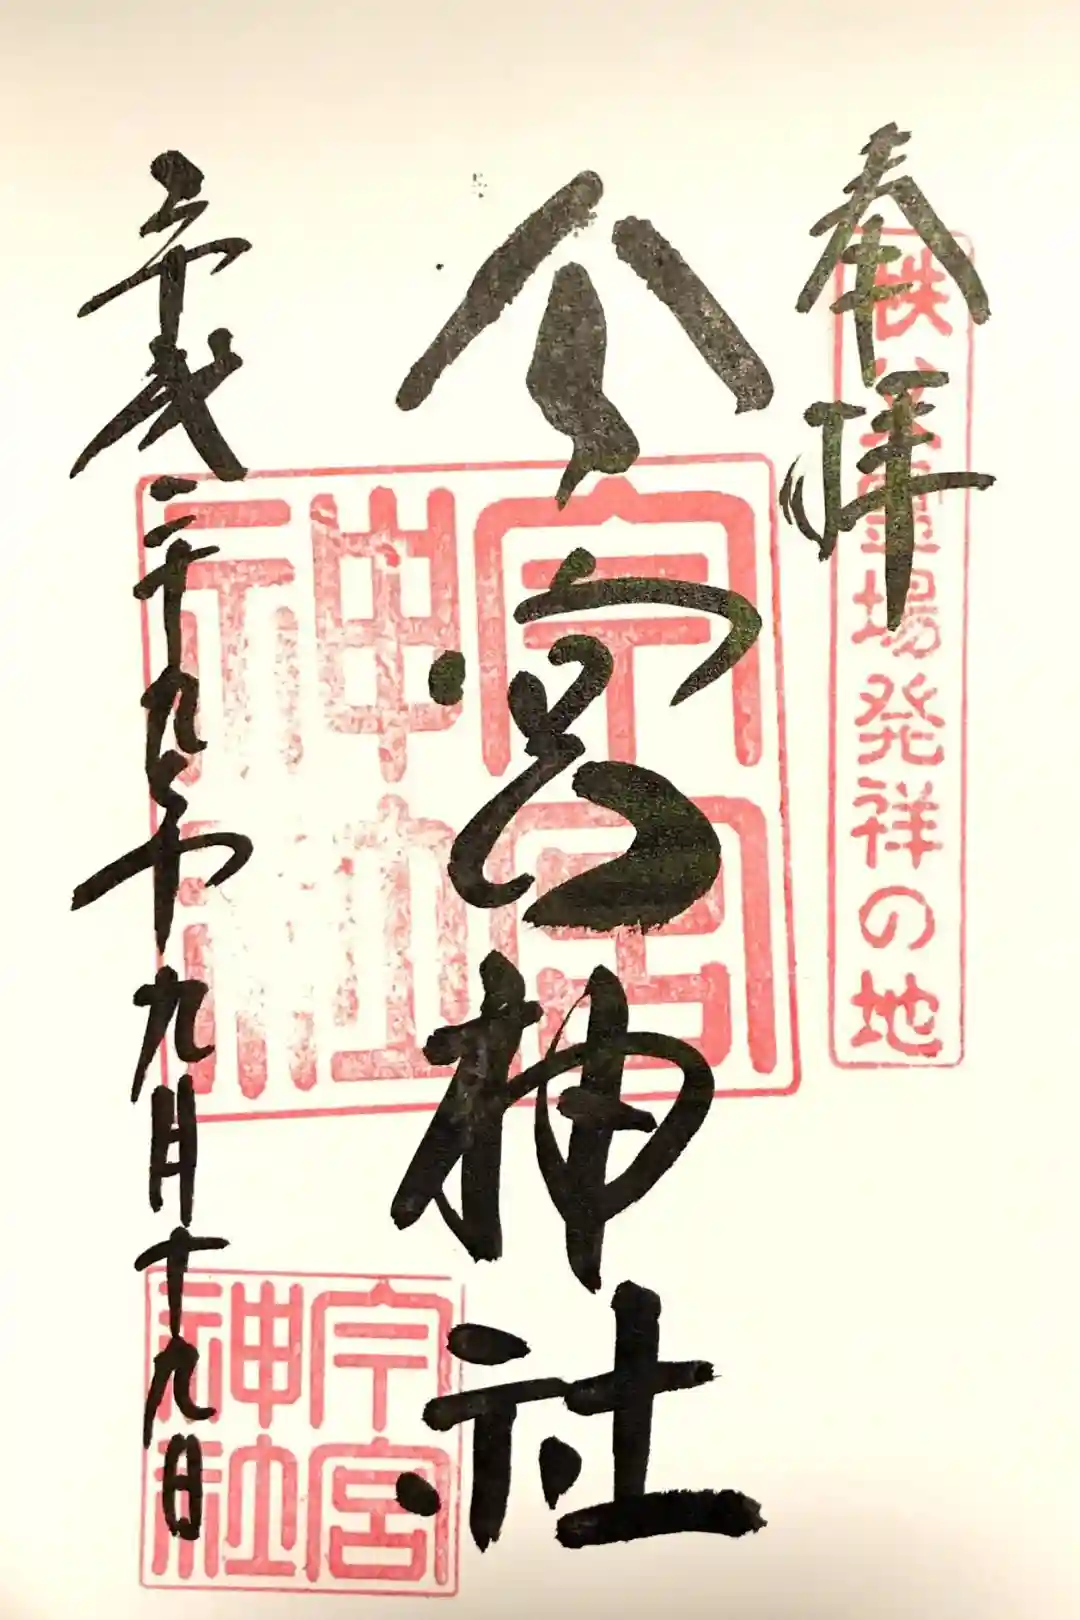 奉拝
秩父霊場発祥の地
今宮神社
今宮神社
平成二十九年九月十九日
今宮神社